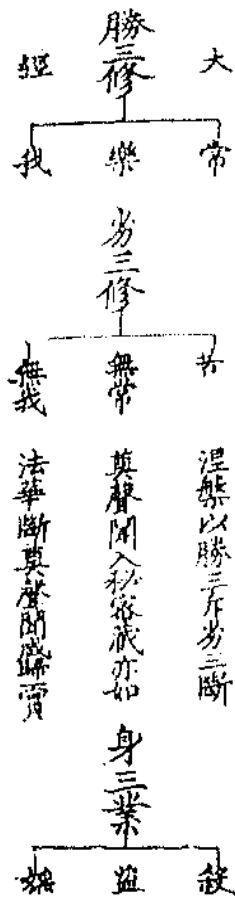 大
勝三修
經
常
樂
我
劣三修
苦
無常
無我
涅槃以勝三斥劣三斷
奠聲聞入秘密藏亦如
法華斷奠聲聞咸歸實
身三業
殺
盜
婬